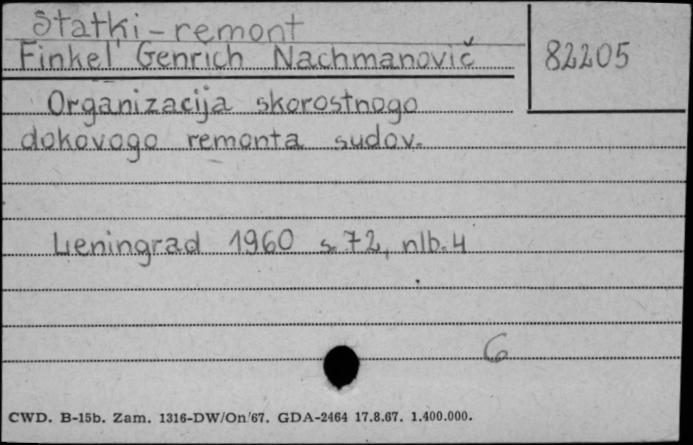 Statki - remont
Finkel' Genrich Nachmanovič
82205
Organizacija skorostnogo
dokovogo remonta sudov.
Leningrad 1960 s. 72, nlb. 4
6
CWD. B-15b. Zam. 1316-DW/On/67. GDA-2464 17.8.67. 1.400.000.